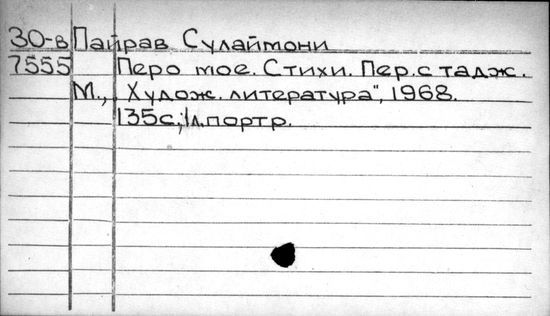 30-в Пайрав Сулаймони
7555 Перо мое. Стихи. Пер. с тадж.
М., „Худож. литература", 1968.
135с.; 1л. портр.